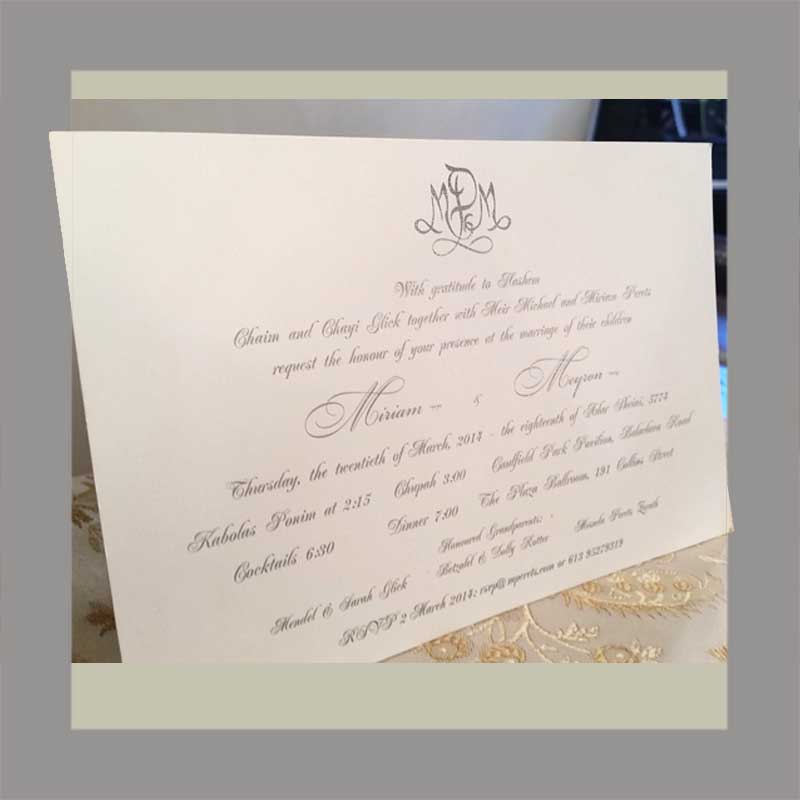 MPM
With gratitude to Hashem
Chaim and Chayi Glick together with Meir Michael and Miriam Perets
request the honour of your presence at the marriage of their children
Miriam & Meyron
Thursday, the twentieth of March, 2014 - the eighteenth of Adar Sheini, 5774
Kabolas Ponim at 2:15 Chupah 3:00 Caulfield Park Pavilion, Balaclava Road
Cocktails 6:30 Dinner 7:00 The Plaza Ballroom, 191 Collins Street
Honoured Grandparents:
Mendel & Sarah Glick Betzalel & Dolly Rotter Masuda Perets
RSVP 2 March 2014: rsvp@mperets.com or 613 95279319